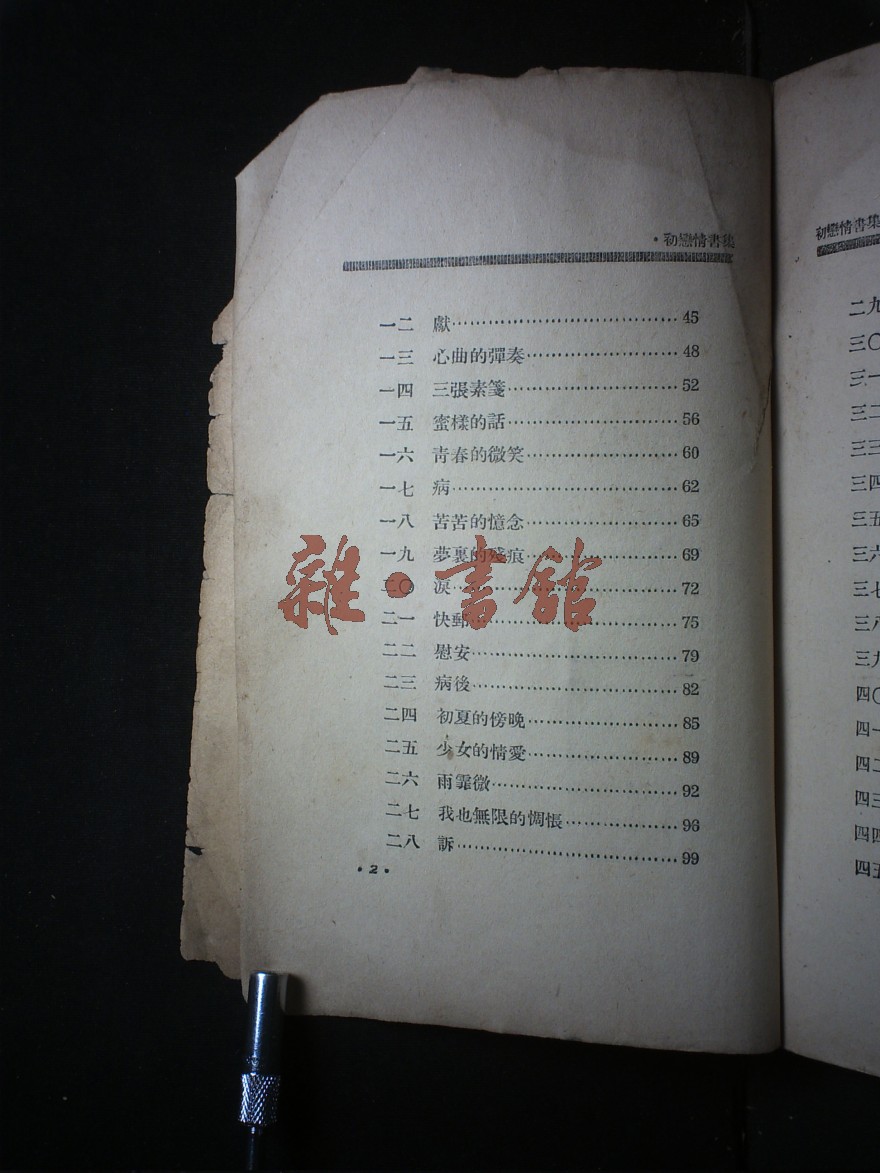 ·初戀情書集
一二 獻……………………………… 45
一三 心曲的彈奏……………………… 48
一四 三張素箋………………………… 52
一五 蜜樣的話………………………… 56
一六 青春的微笑……………………… 60
一七 病……………………………… 62
一八 苦苦的憶念……………………… 65
一九 夢裏的殘痕……………………… 69
二〇 淚……………………………… 72
二一 快郵…………………………… 75
二二 慰安…………………………… 79
二三 病後…………………………… 82
二四 初夏的傍晚……………………… 85
二五 少女的情愛……………………… 89
二六 雨霏微…………………………… 92
二七 我也無限的惆悵………………… 96
二八 訴……………………………… 99
·2·
雜·書館
初戀情書集
二九
三〇
三一
三二
三三
三四
三五
三六
三七
三八
三九
四〇
四一
四二
四三
四四
四五